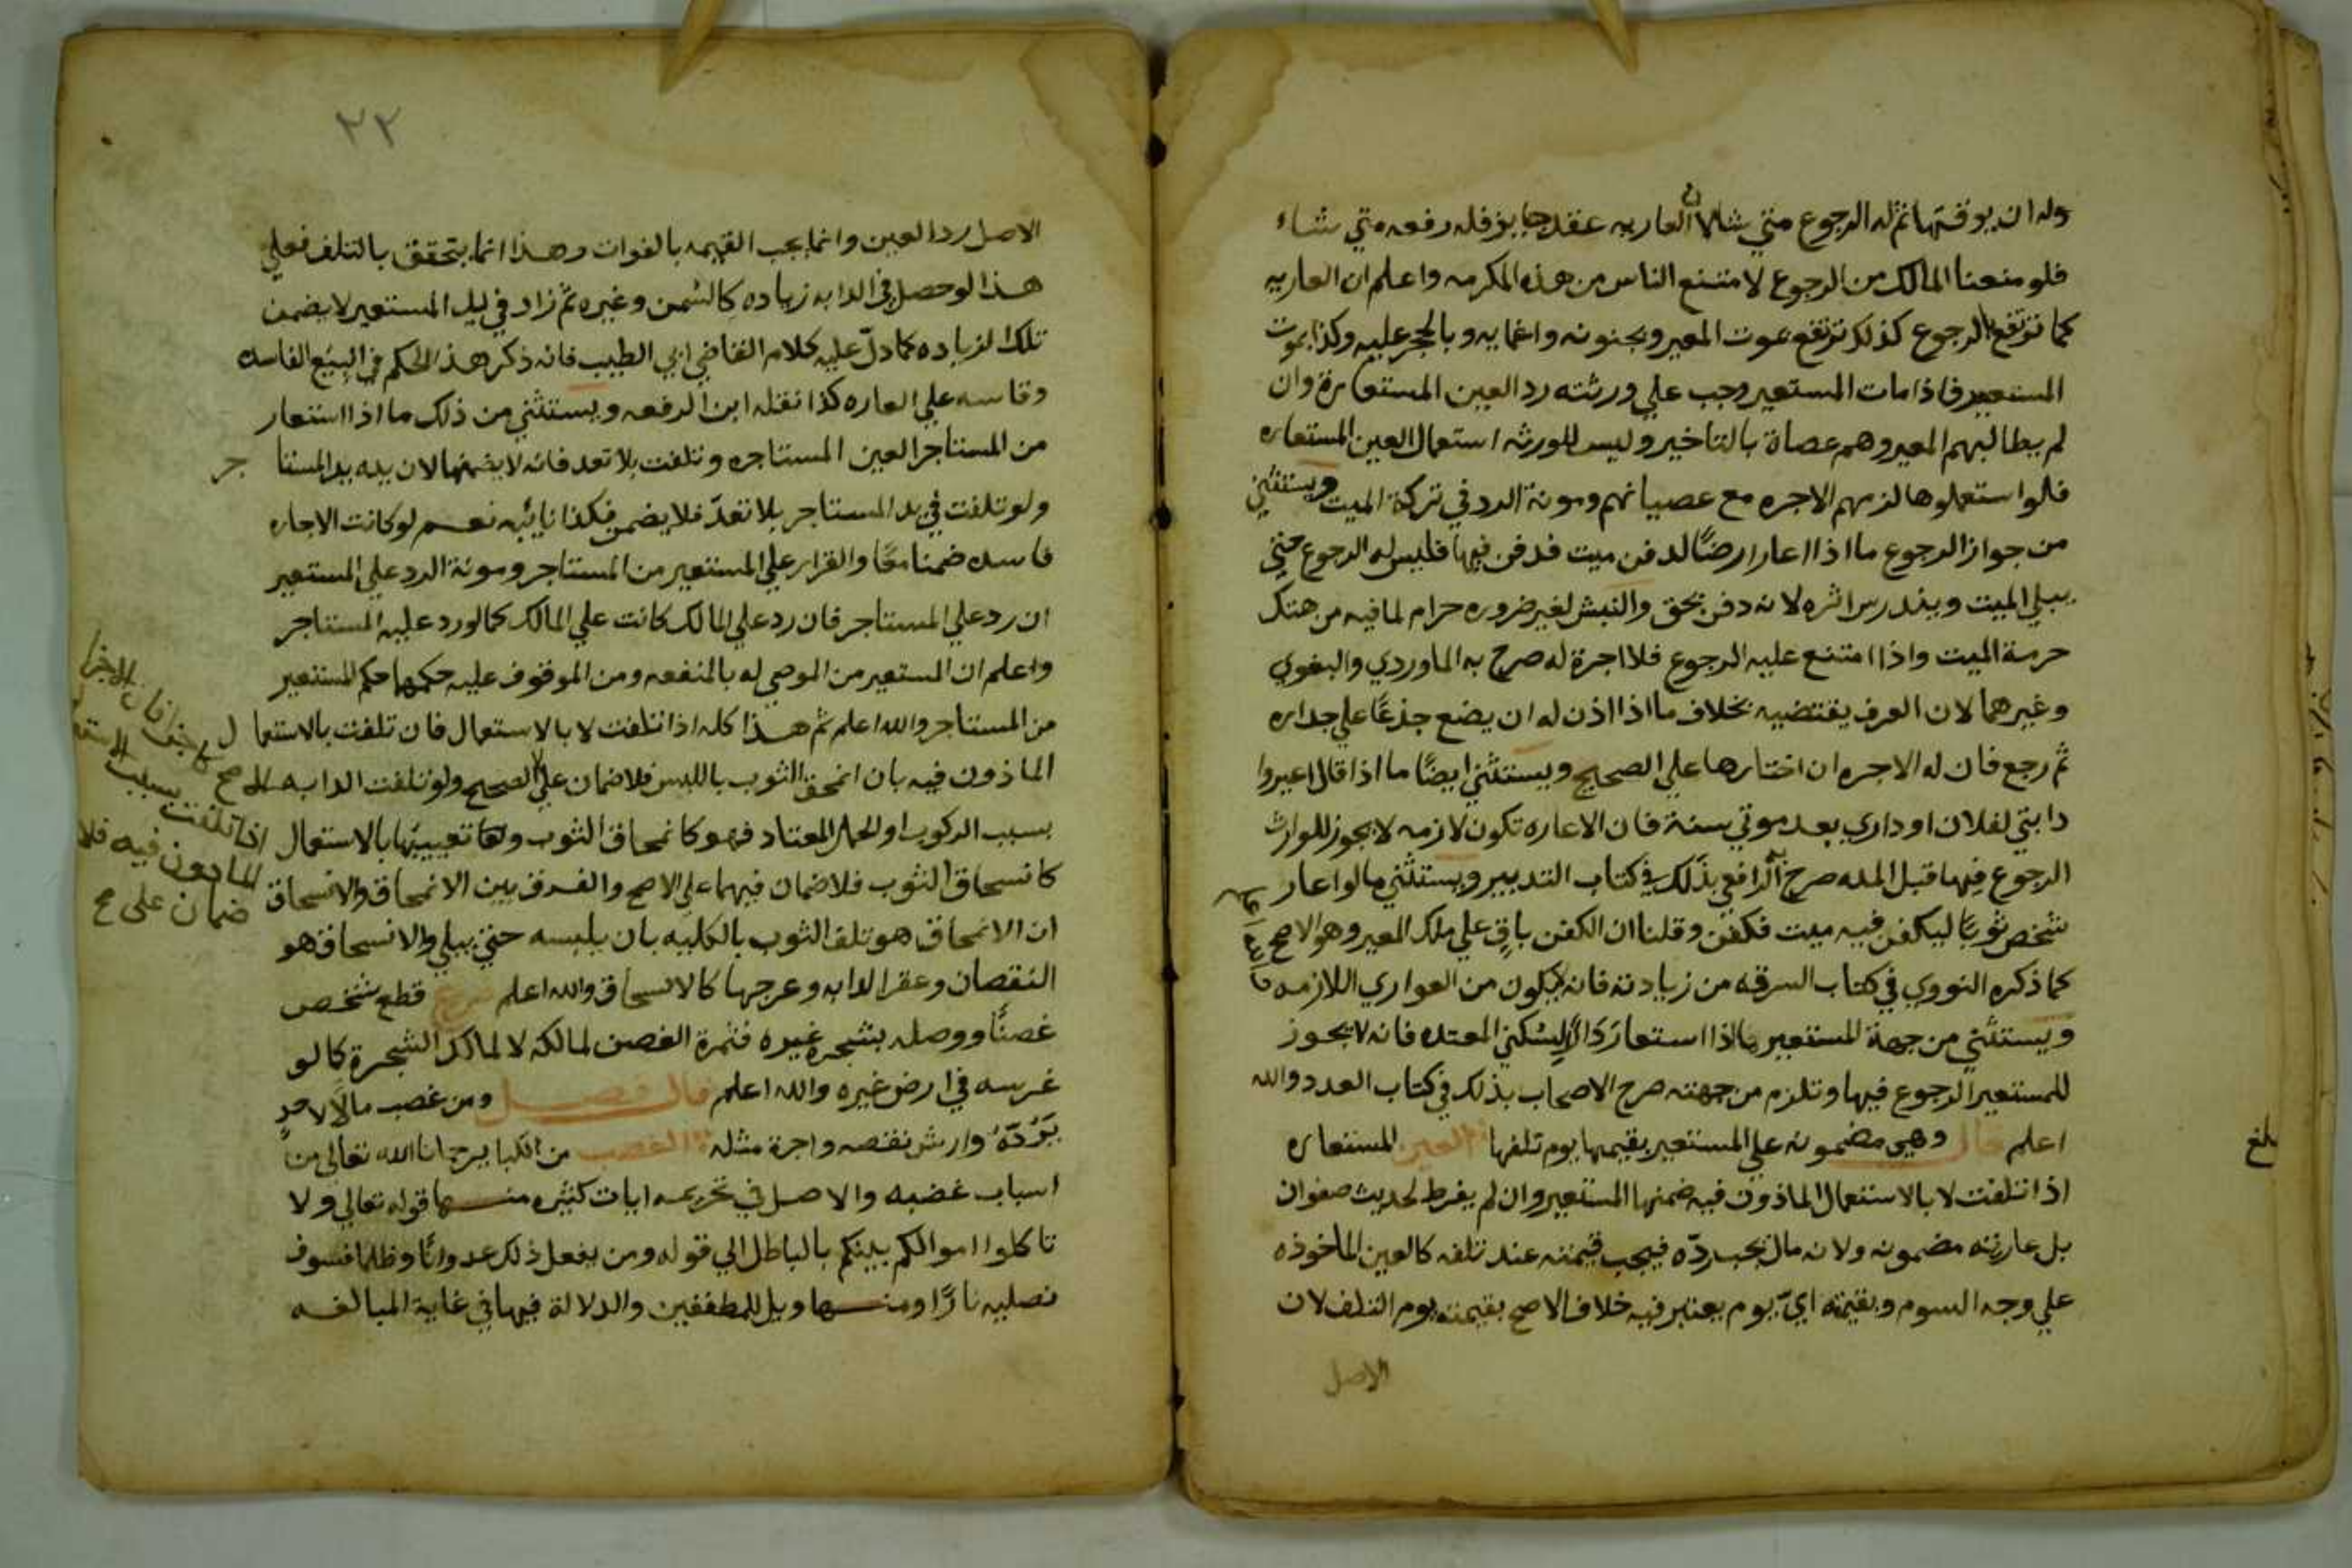 وله ان يوقتها ثم له الرجوع متي شا لان العاريه عقد جايز فله رفعه متي شاء
فلو منعنا المالك من الرجوع لامتنع الناس من هذه المكرمه واعلم ان العاريه
كما ترتفع بالرجوع كذلك ترتفع بموت المعير وبجنونه واغمايه وبالحجر عليه وكذا بموت
المستعير فاذا مات المستعير وجب علي ورثته رد العين المستعارة وان
لم يطالبهم المعير وهم عصاة بالتاخير وليس للورثه استعمال العين المستعاره
فلو استعملوها لزمهم الاجره مع عصيانهم ومونة الرد في تركة الميت ويستثني
من جواز الرجوع ما اذا اعار ارضًا لدفن ميت فدفن فيها فليس له الرجوع حتي
يبلي الميت ويندرس اثره لانه دفن بحق والنبش لغير ضروره حرام لما فيه من هتك
حرمة الميت واذا امتنع عليه الرجوع فلا اجرة له صرح به الماوردي والبغوي
وغيرهما لان العرف يقتضيه بخلاف ما اذا اذن له ان يضع جذعًا علي جداره
ثم رجع فان له الاجره ان اختارها علي الصحيح ويستثني ايضًا ما اذا قال اعيروا
دابتي لفلان او داري بعد موتي سنة فان الاعاره تكون لازمه لا يجوز للوارث
الرجوع فيها قبل المده صرح الرافعي بذلك في كتاب التدبير ويستثني ما لو اعار
شخص ثوبًا ليكفن فيه ميت فكفن وقلنا ان الكفن باقٍ علي ملك المعير وهو الاصح
كما ذكره النووي في كتاب السرقه من زيادته فانه يكون من العواري اللازمه
ويستثني من جهة المستعير ما اذا استعار دارًا لسكني المعتده فانه لا يجوز
للمستعير الرجوع فيها وتلزم من جهته صرح الاصحاب بذلك في كتاب العدد والله
اعلم قال وهي مضمونه علي المستعير بقيمتها يوم تلفها العين المستعاره
بلغ
اذا تلفت لا بالاستعمال الماذون فيه ضمنها المستعير وان لم يفرط لحديث صفوان
بل عاريته مضمونه ولانه مال يجب ردّه فيجب قيمته عند تلفه كالعين الماخوذه
علي وجه السوم وبقيمته ايّ يوم يعتبر فيه خلاف الاصح بقيمته يوم التلف لان
الاصل
٢٢
الاصل رد العين وانما يجب القيمه بالفوات وهذا انما يتحقق بالتلف فعلي
هذا لو حصل في الدابه زياده كالسمن وغيره ثم زاد في يد المستعير لا يضمن
تلك الزياده كما دلّ عليه كلام القاضي ابي الطيب فانه ذكر هذا الحكم في البيع الفاسد
وقاسه علي العاره كذا نقله ابن الرفعه ويستثني من ذلك ما اذا استعار
من المستاجر العين المستاجره وتلفت بلا تعد فانه لا يضمنها لان يده يد المستاجر
ولو تلفت في يد المستاجر بلا تعدّ فلا يضمن فكذا نايبه نعم لو كانت الاجاره
فاسده ضمنا معًا والقرار علي المستعير من المستاجر ومونة الرد علي المستعير
ان رد علي المستاجر فان رد علي المالك كانت علي المالك كما لو رد عليه المستاجر
واعلم ان المستعير من الموصي له بالمنفعه ومن الموقوف عليه حكمهما حكم المستعير
من المستاجر والله اعلم ثم هذا كله اذا تلفت لا بالاستعمال فان تلفت بالاستعمال
الماذون فيه بان انمحق الثوب باللبس فلا ضمان علي الصحيح ولو تلفت الدابه
بسبب الركوب او الحمل المعتاد فهو كانمحاق الثوب واما تعييبها بالاستعمال
كانسحاق الثوب فلا ضمان فيهما علي الاصح والفرق بين الانمحاق والانسحاق
ان الانمحاق هو تلف الثوب بالكليه بان يلبسه حتي يبلي والانسحاق هو
النقصان وعقر الدابه وعرجها كالانسحاق والله اعلم فرع قطع شخص
غصنًا ووصله بشجره غيره فثمرة الغصن لمالكه لا لمالك الشجرة كما لو
غرسه في ارض غيره والله اعلم قال فصل ومن غصب مالًا لاحد
بردّه وارش نقصه واجرة مثله الغصب من الكباير حمانا الله تعالي من
اسباب غضبه والاصل في تحريمه ايات كثيره منها قوله تعالي ولا
تاكلوا اموالكم بينكم بالباطل الي قوله ومن يفعل ذلك عدوانًا وظلما فسوف
نصليه نارًا ومنها ويل للمطففين والدلالة فيها في غاية المبالغه
اذا تلفت بسبب
الماذون فيه فلا
ضمان علي صح